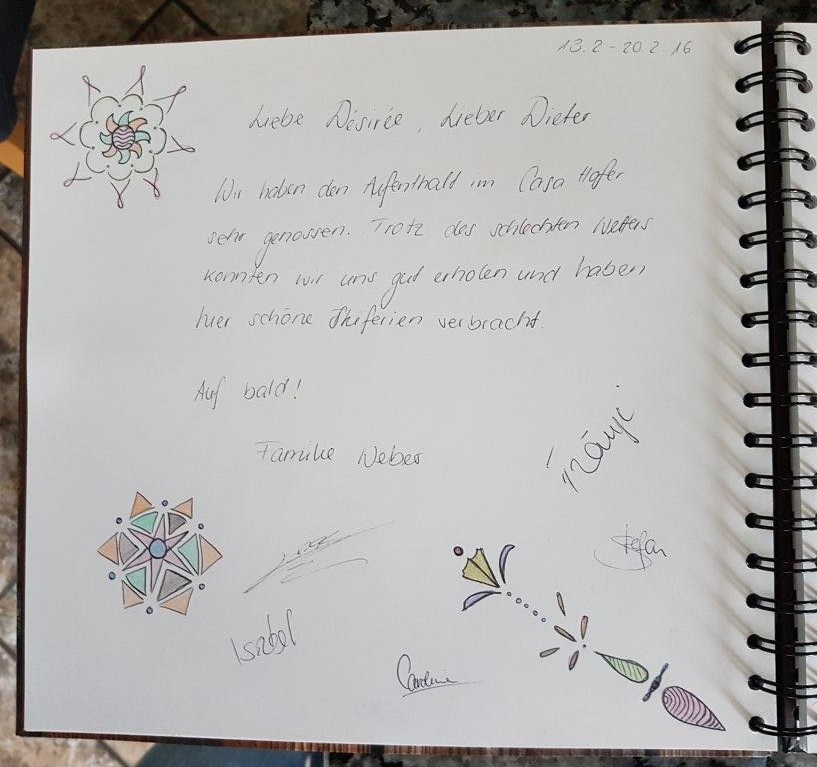 13.2 - 20.2.16
Liebe Désirée, Lieber Dieter
Wir haben den Aufenthalt im Casa Hofer
sehr genossen. Trotz des schlechten Wetters
konnten wir uns gut erholen und haben
hier schöne Skiferien verbracht.
Auf bald!
Familie Weber
Stefan
Isabel
Caroline